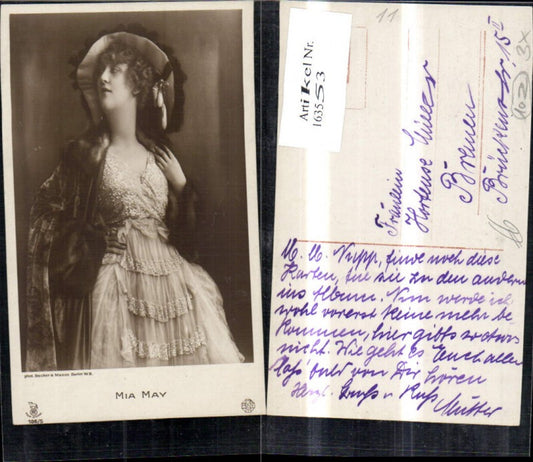 phot. Becker & Maass Berlin W.9.
MIA MAY
136/5
Artikel Nr.
163553
11
3x
Fräulein
Hortense
Bremen
Brückenstr. 15 II
M. U. Nupp, finde noch diese
Karten, tue sie zu den andern
ins Album. Nun werde ich
wohl vorerst keine mehr be-
kommen, hier gibts so etwas
nicht. Wie geht es Euch allen
lass bald von Dir hören
Herzl. Gruss u. Kuss
Mutter